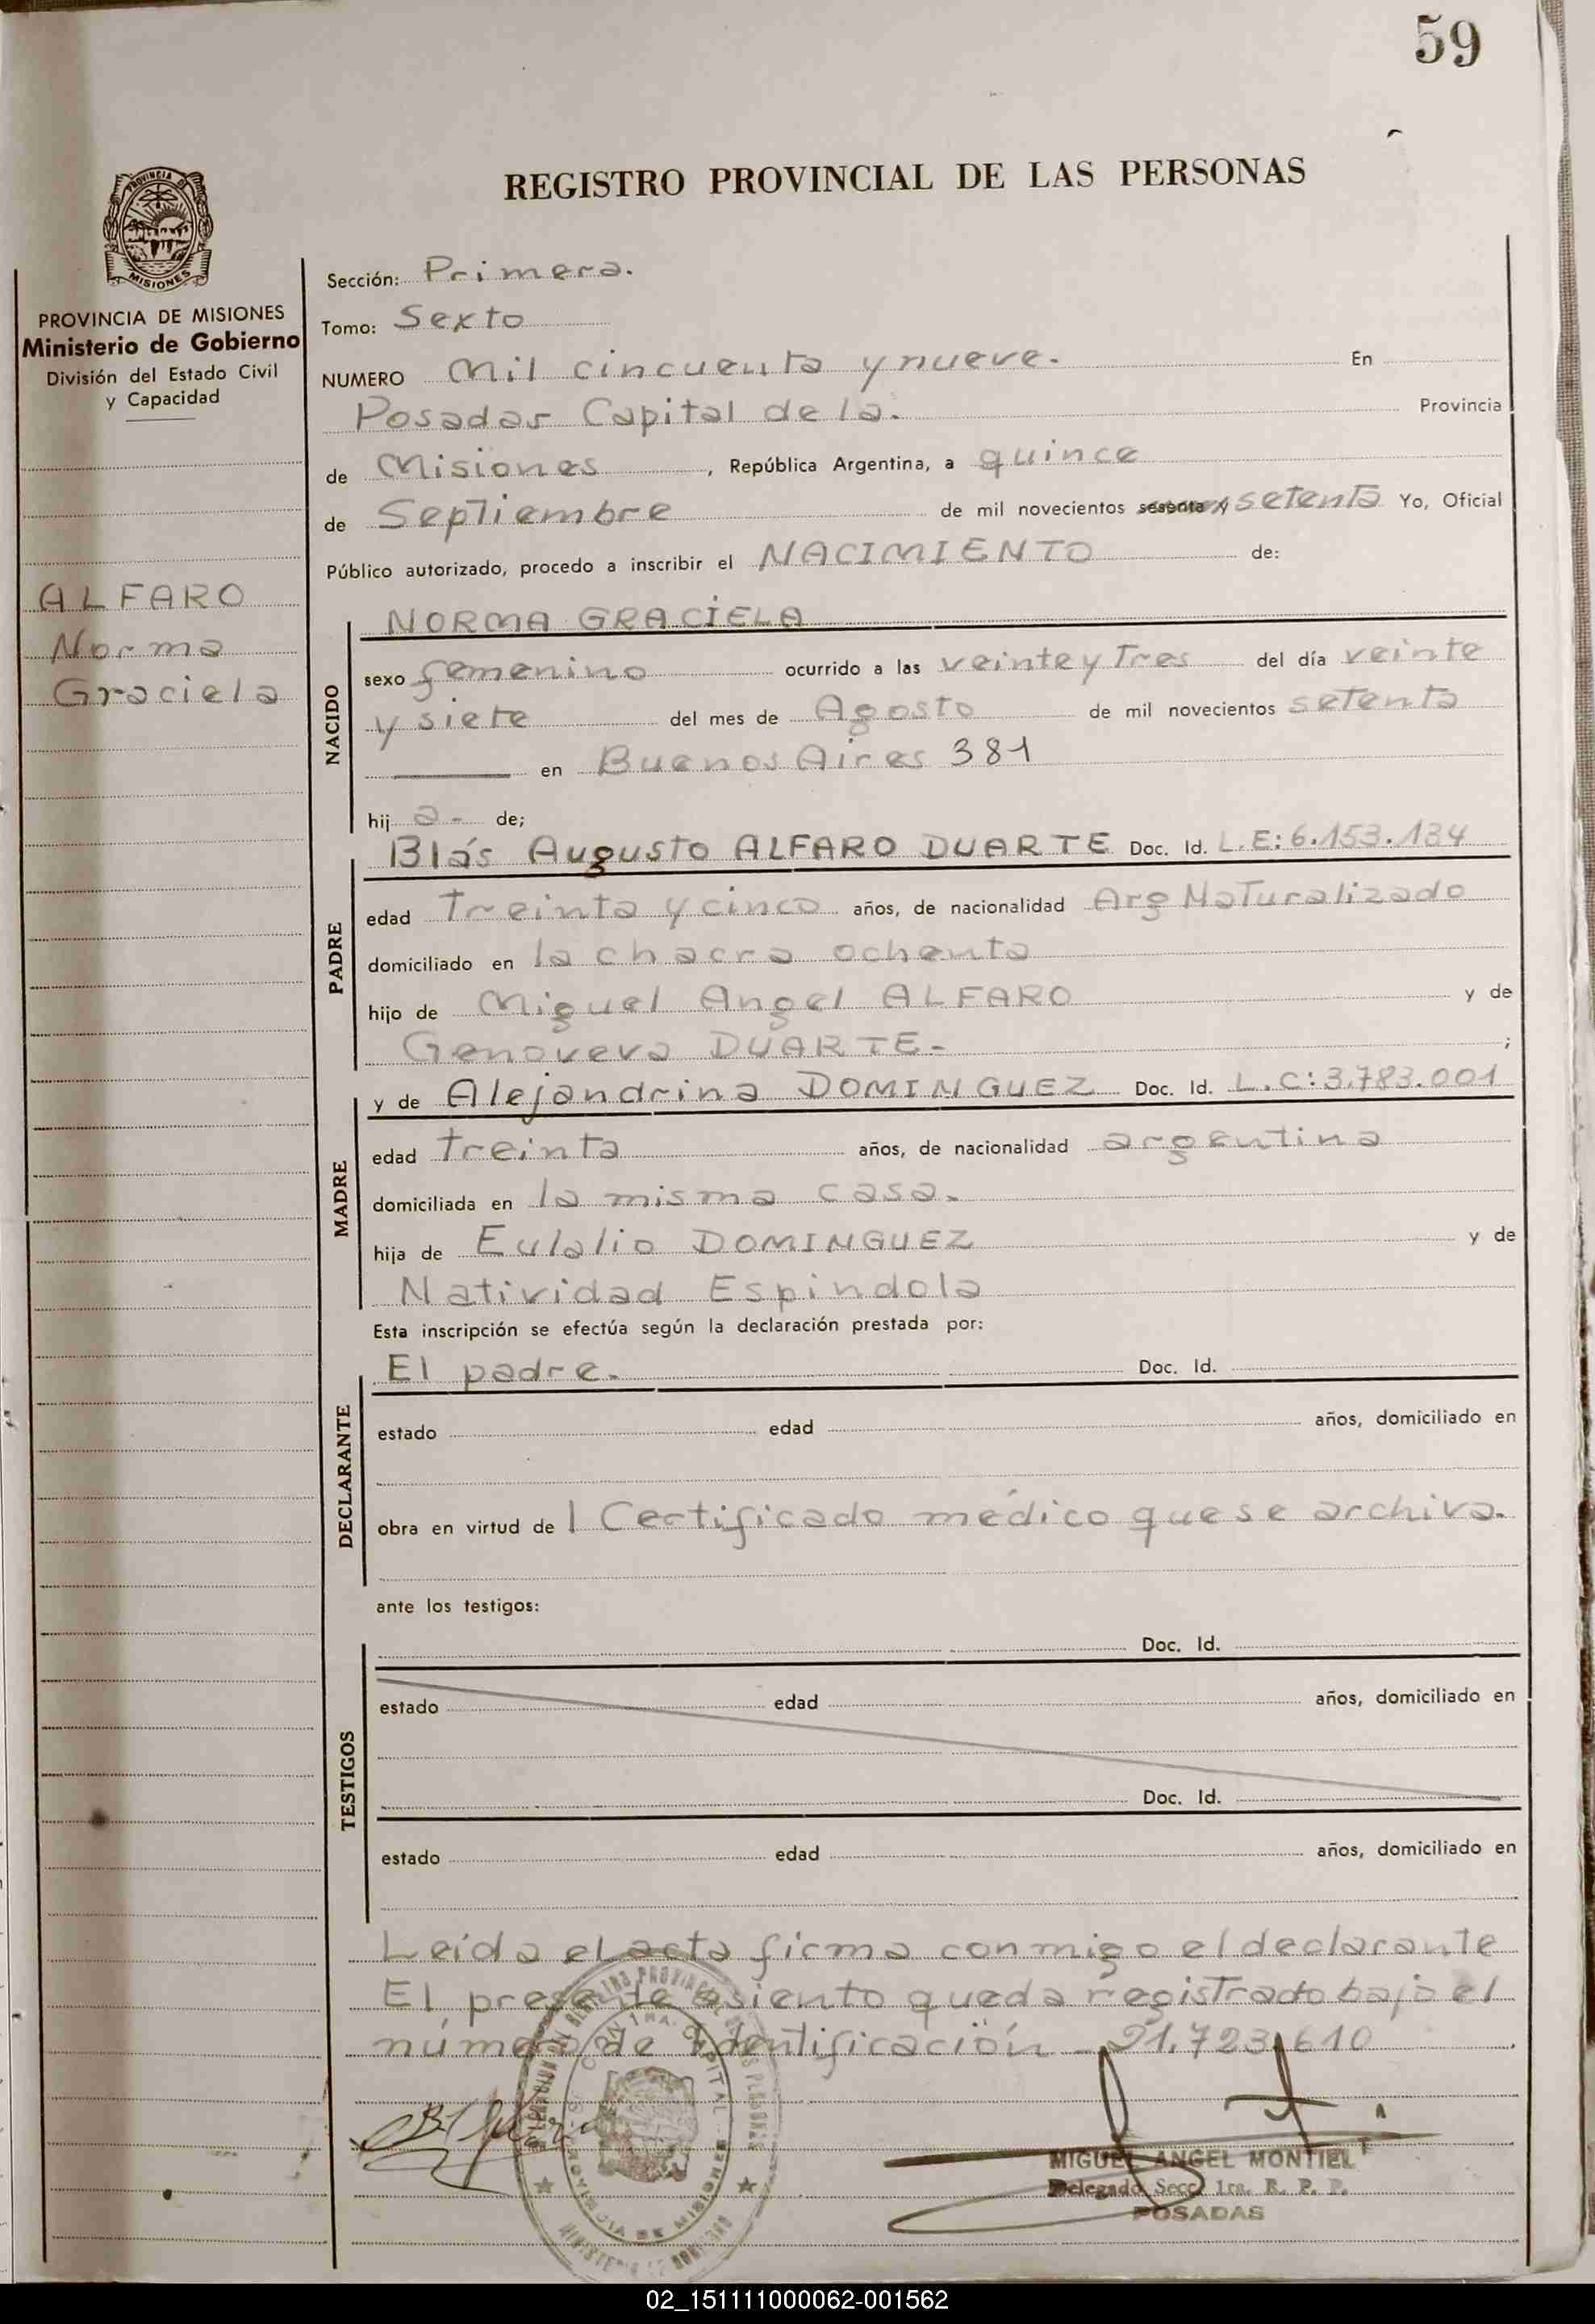 59
REGISTRO PROVINCIAL DE LAS PERSONAS
PROVINCIA DE MISIONES
Ministerio de Gobierno
División del Estado Civil
y Capacidad
ALFARO
Norma
Graciela
Sección: Primera.
Tomo: Sexto
NUMERO Mil cincuenta y nueve. En
Posadas Capital de la. Provincia
de Misiones, República Argentina, a quince
de Septiembre de mil novecientos sesenta y setenta Yo, Oficial
Público autorizado, procedo a inscribir el NACIMIENTO de:
NACIDO
NORMA GRACIELA
sexo femenino ocurrido a las veinte y Tres del día veinte
y siete del mes de Agosto de mil novecientos setenta
en Buenos Aires 381
hij a- de;
PADRE
Blás Augusto ALFARO DUARTE Doc. Id. L.E: 6.153.134
edad Treinta y cinco años, de nacionalidad Arg Naturalizado
domiciliado en la chacra ochenta
hijo de Miguel Angel ALFARO y de
Genoveva DUARTE- ;
MADRE
y de Alejandrina DOMINGUEZ Doc. Id. L.C: 3.783.001
edad Treinta años, de nacionalidad argentina
domiciliada en la misma casa.
hija de Eulalio DOMINGUEZ y de
Natividad Espindola
Esta inscripción se efectúa según la declaración prestada por:
DECLARANTE
El padre. Doc. Id.
estado edad años, domiciliado en
obra en virtud de l Certificado médico que se archiva.
ante los testigos:
TESTIGOS
Doc. Id.
estado edad años, domiciliado en
Doc. Id.
estado edad años, domiciliado en
Leida el acta firma conmigo el declarante
El presente asiento queda registrado bajo el
número de Identificación - 21.723.610
MIGUEL ANGEL MONTIEL
Delegado Secc. 1ra. R. P. P.
POSADAS
02_151111000062-001562